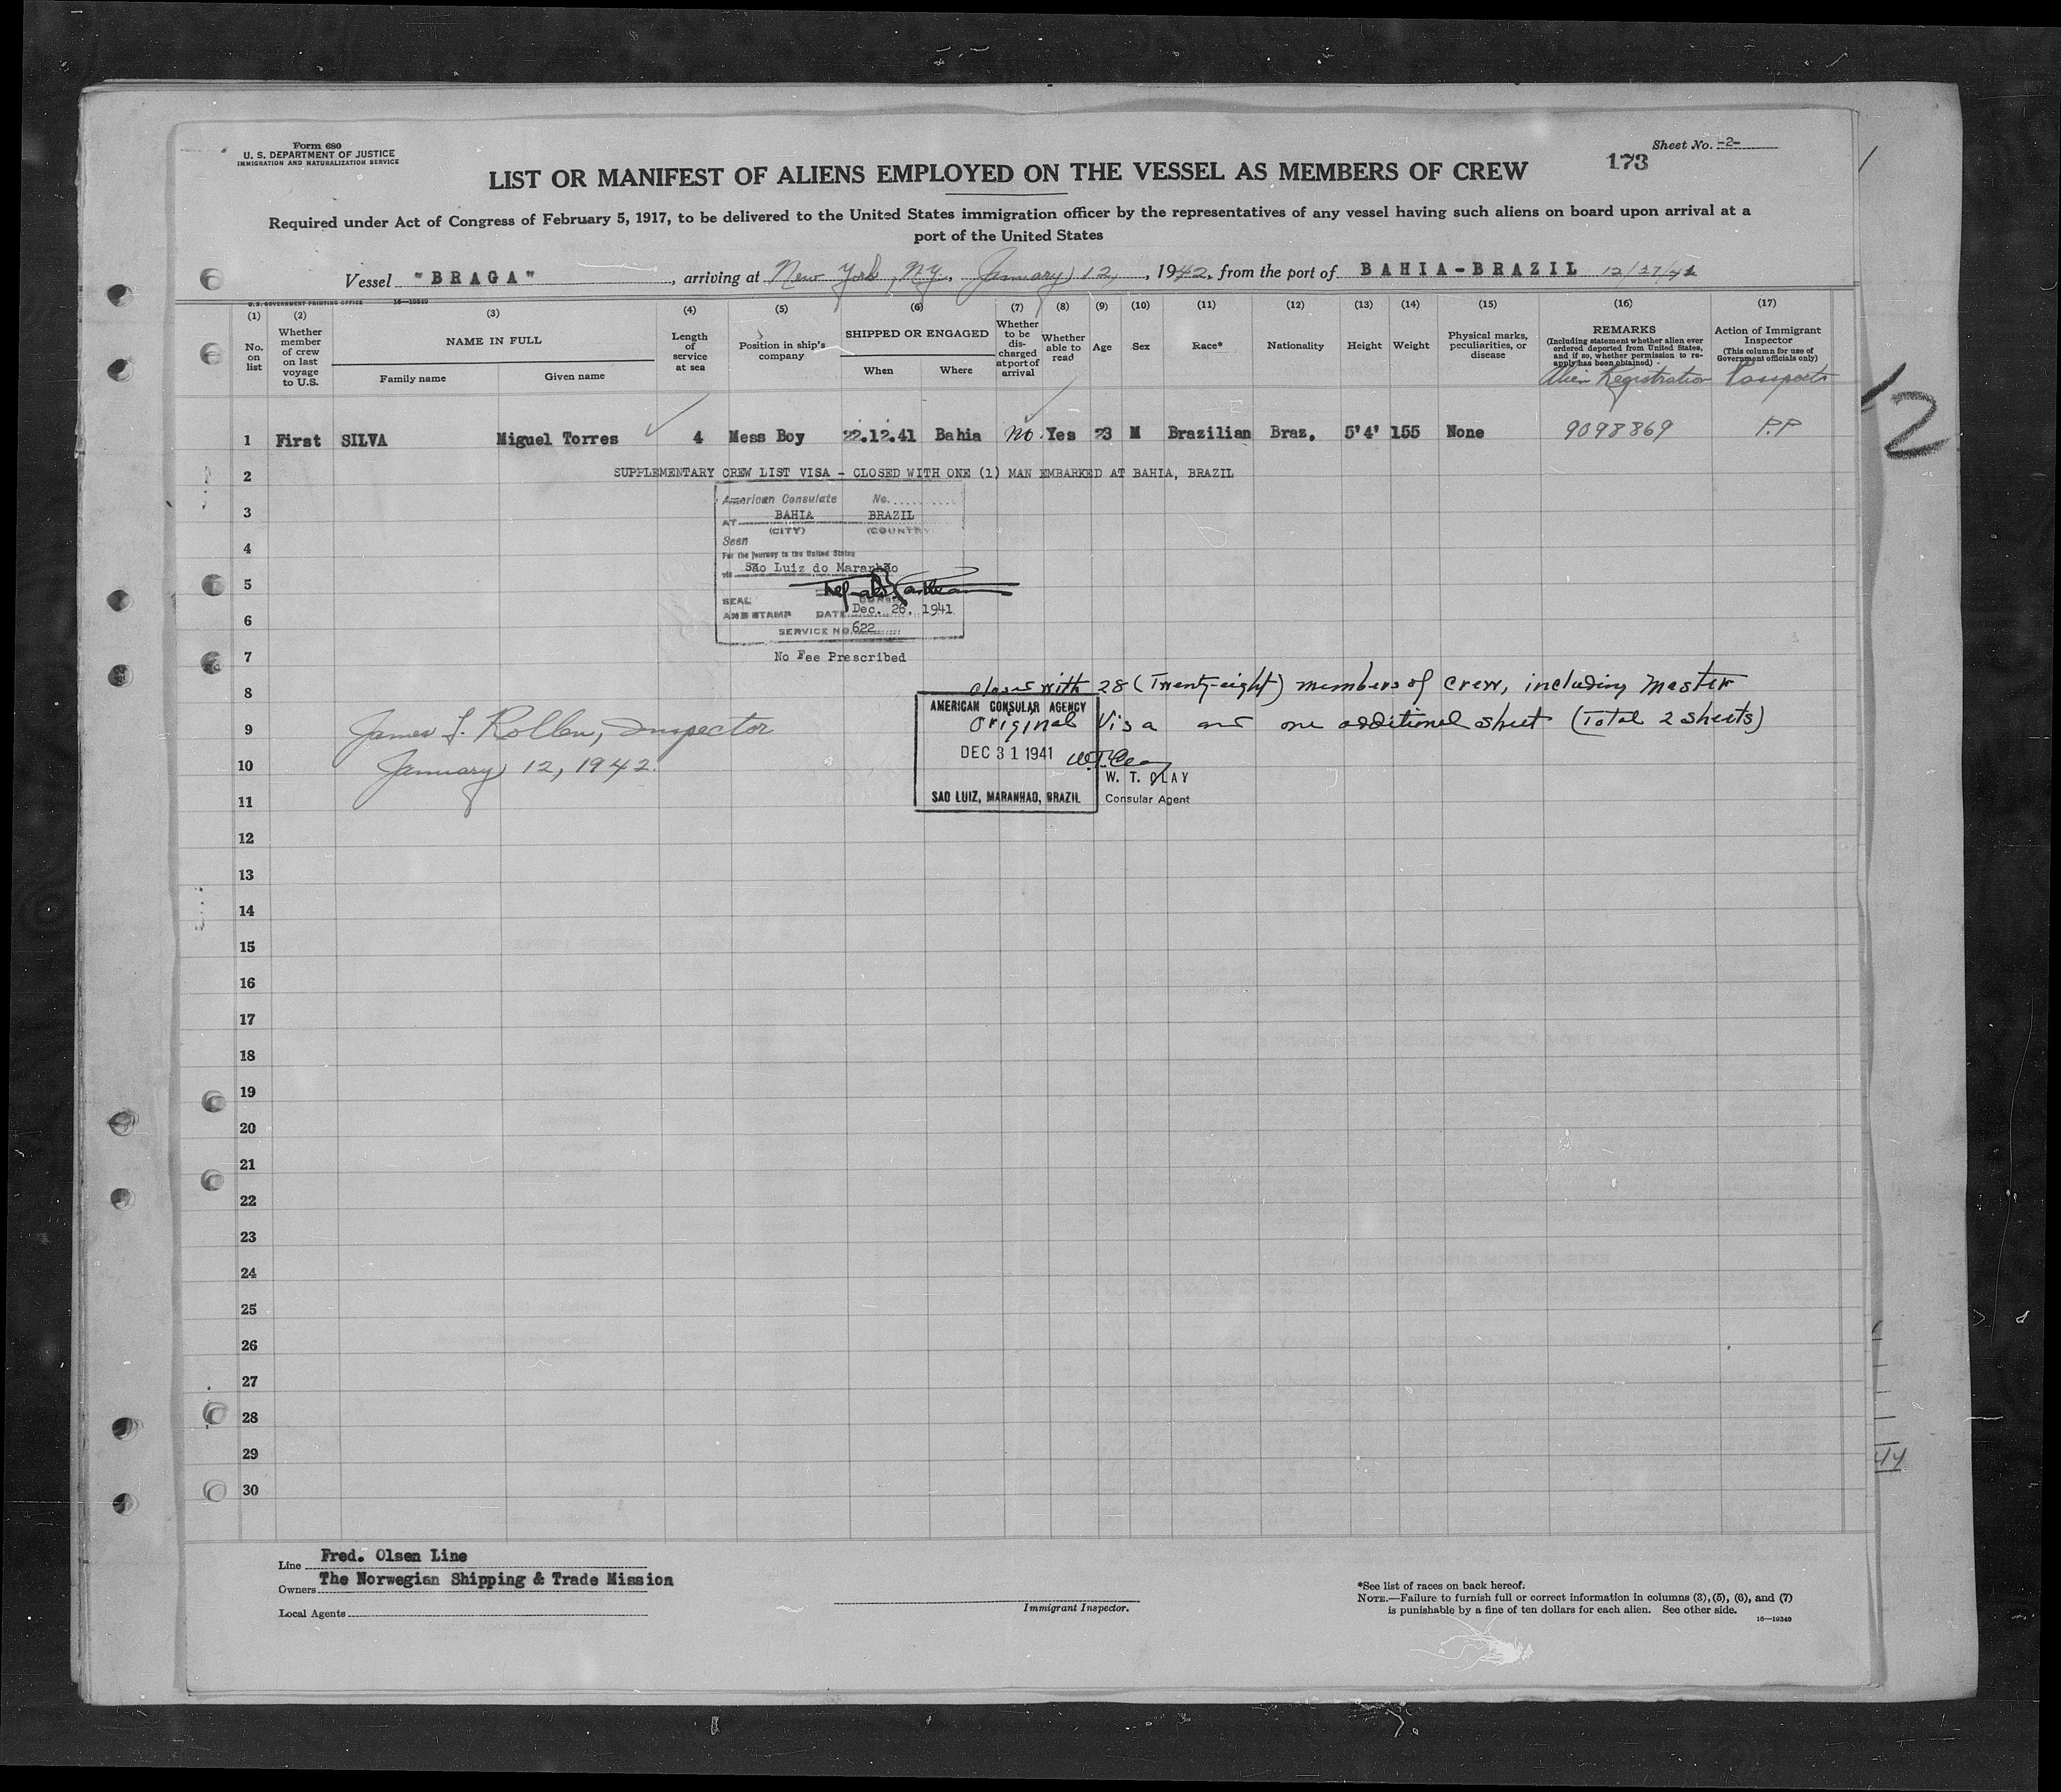 Form 680
U. S. DEPARTMENT OF JUSTICE
IMMIGRATION AND NATURALIZATION SERVICE
Sheet No. -2-
173
LIST OR MANIFEST OF ALIENS EMPLOYED ON THE VESSEL AS MEMBERS OF CREW
Required under Act of Congress of February 5, 1917, to be delivered to the United States immigration officer by the representatives of any vessel having such aliens on board upon arrival at a
port of the United States
Vessel "BRAGA", arriving at New York, N.Y. January 12, 1942, from the port of BAHIA-BRAZIL 12/27/41
U. S. GOVERNMENT PRINTING OFFICE 16—19349
(1) (2) (3) (4) (5) (6) (7) (8) (9) (10) (11) (12) (13) (14) (15) (16) (17)
No. on list
Whether member of crew on last voyage to U.S.
NAME IN FULL
Family name
Given name
Length of service at sea
Position in ship's company
SHIPPED OR ENGAGED
When
Where
Whether to be discharged at port of arrival
Whether able to read
Age
Sex
Race*
Nationality
Height
Weight
Physical marks, peculiarities, or disease
REMARKS
(Including statement whether alien ever ordered deported from United States, and if so, whether permission to re-apply has been obtained)
Alien Registration
Action of Immigrant Inspector
(This column for use of Government officials only)
Passports
12
1 First SILVA Miguel Torres 4 Mess Boy 22.12.41 Bahia No. Yes 23 M Brazilian Braz. 5'4' 155 None 9098869 P.P
2 SUPPLEMENTARY CREW LIST VISA - CLOSED WITH ONE (1) MAN EMBARKED AT BAHIA, BRAZIL
American Consulate No.
3
AT BAHIA BRAZIL
(CITY) (COUNTRY)
Seen
4
For the journey to the United States
via São Luiz do Maranhão
5
SEAL
AND STAMP DATE Dec. 26, 1941
6
SERVICE NO. 622
7 No Fee Prescribed
8 closed with 28 (Twenty-eight) members of crew, including Master
AMERICAN CONSULAR AGENCY
9 James J. Rollen, Inspector
Original Visa and one additional sheet (Total 2 sheets)
10 January 12, 1942.
DEC 31 1941
W. T. CLAY
11
SAO LUIZ, MARANHAO, BRAZIL
Consular Agent
12
13
14
15
16
17
18
19
20
21
22
23
24
25
26
27
28
29
30
44
Line Fred. Olsen Line
Owners The Norwegian Shipping & Trade Mission
Local Agents
Immigrant Inspector.
*See list of races on back hereof.
NOTE.—Failure to furnish full or correct information in columns (3), (5), (6), and (7)
is punishable by a fine of ten dollars for each alien. See other side.
16—19349